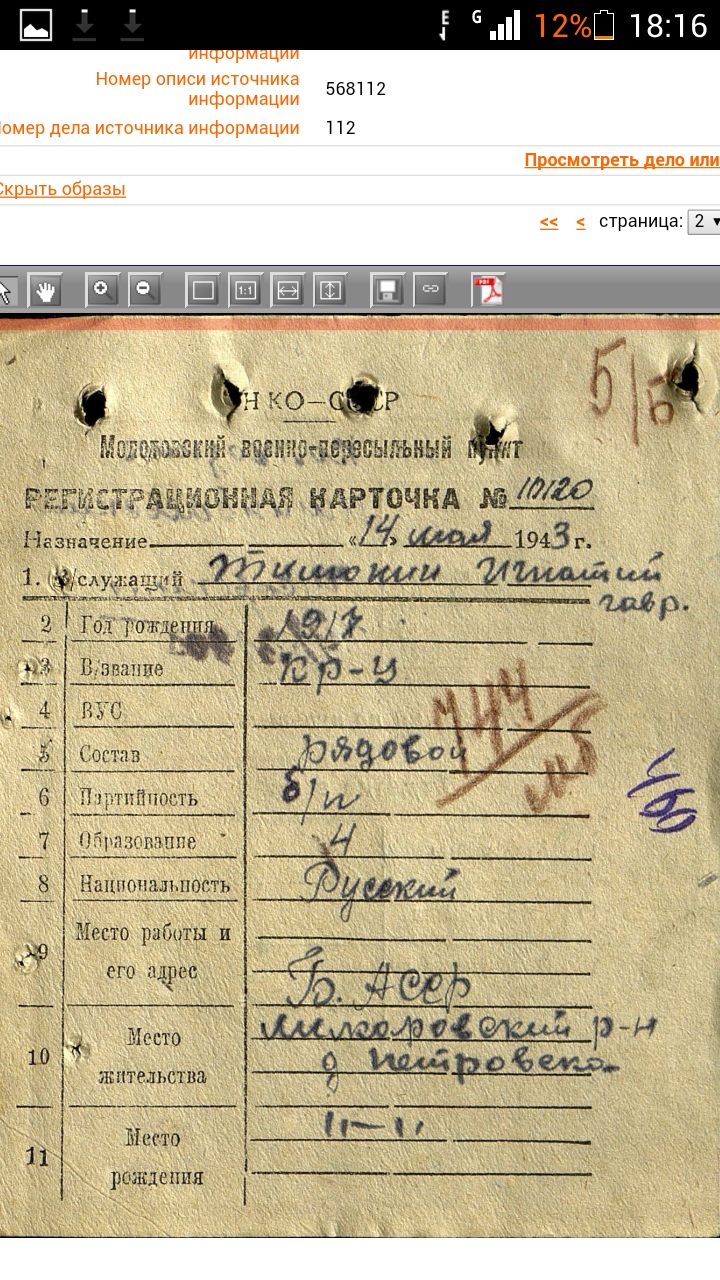 E
G
12%
18:16
информации
Номер описи источника
информации
568112
Номер дела источника информации
112
Просмотреть дело или
Скрыть образы
<<
<
страница:
2
1:1
PDF
НКО-СССР
Молотовский военно-пересыльный пункт
5/Б
РЕГИСТРАЦИОННАЯ КАРТОЧКА № 10120
Назначение «14» мая 1943 г.
1. В/служащий Тимонин Игнатий
гавр.
2 Год рождения 1917
3 В/звание кр-ц
4 ВУС
744
5 Состав рядовой
6 Партийность б/п
7 Образование 4
8 Национальность Русский
9 Место работы и
его адрес
Б. АССР
10 Место
жительства
р-н
д Петровско
11 Место
рождения
11-11